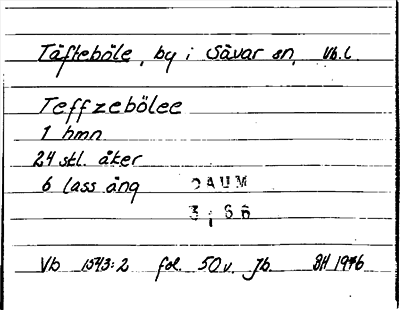 Täfteböle, by i Sävar sn, Vb.l.
Teffzebölee
1 hmn
24 stl. åker
6 lass äng
DAUM
3; 66
Vb 1543:2 fol. 50v. Jb. BH 1976